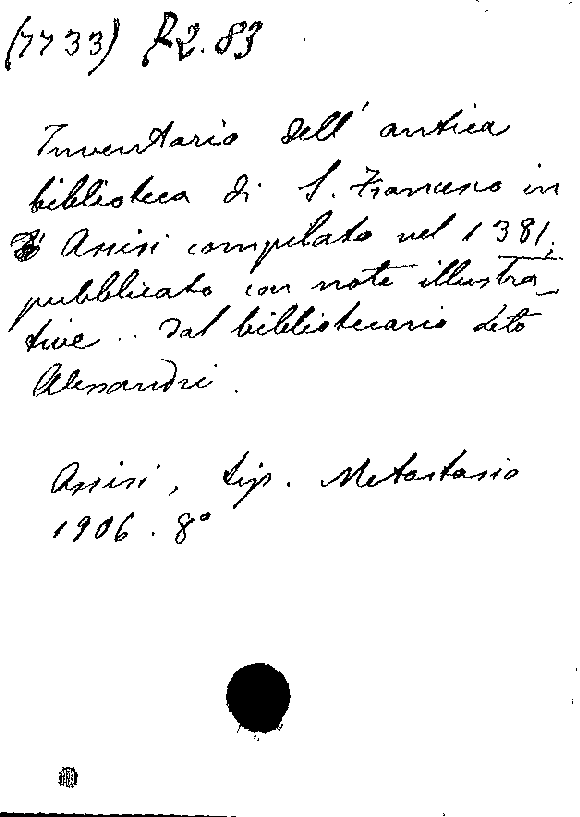 (7733) R2.83
Inventario dell' antica
biblioteca di S. Francesco in
Assisi compilato nel 1381,
pubblicato con note illustra_
tive .. dal bibliotecario Leto
Alessandri.
Assisi, tip. Metastasio
1906. 8°